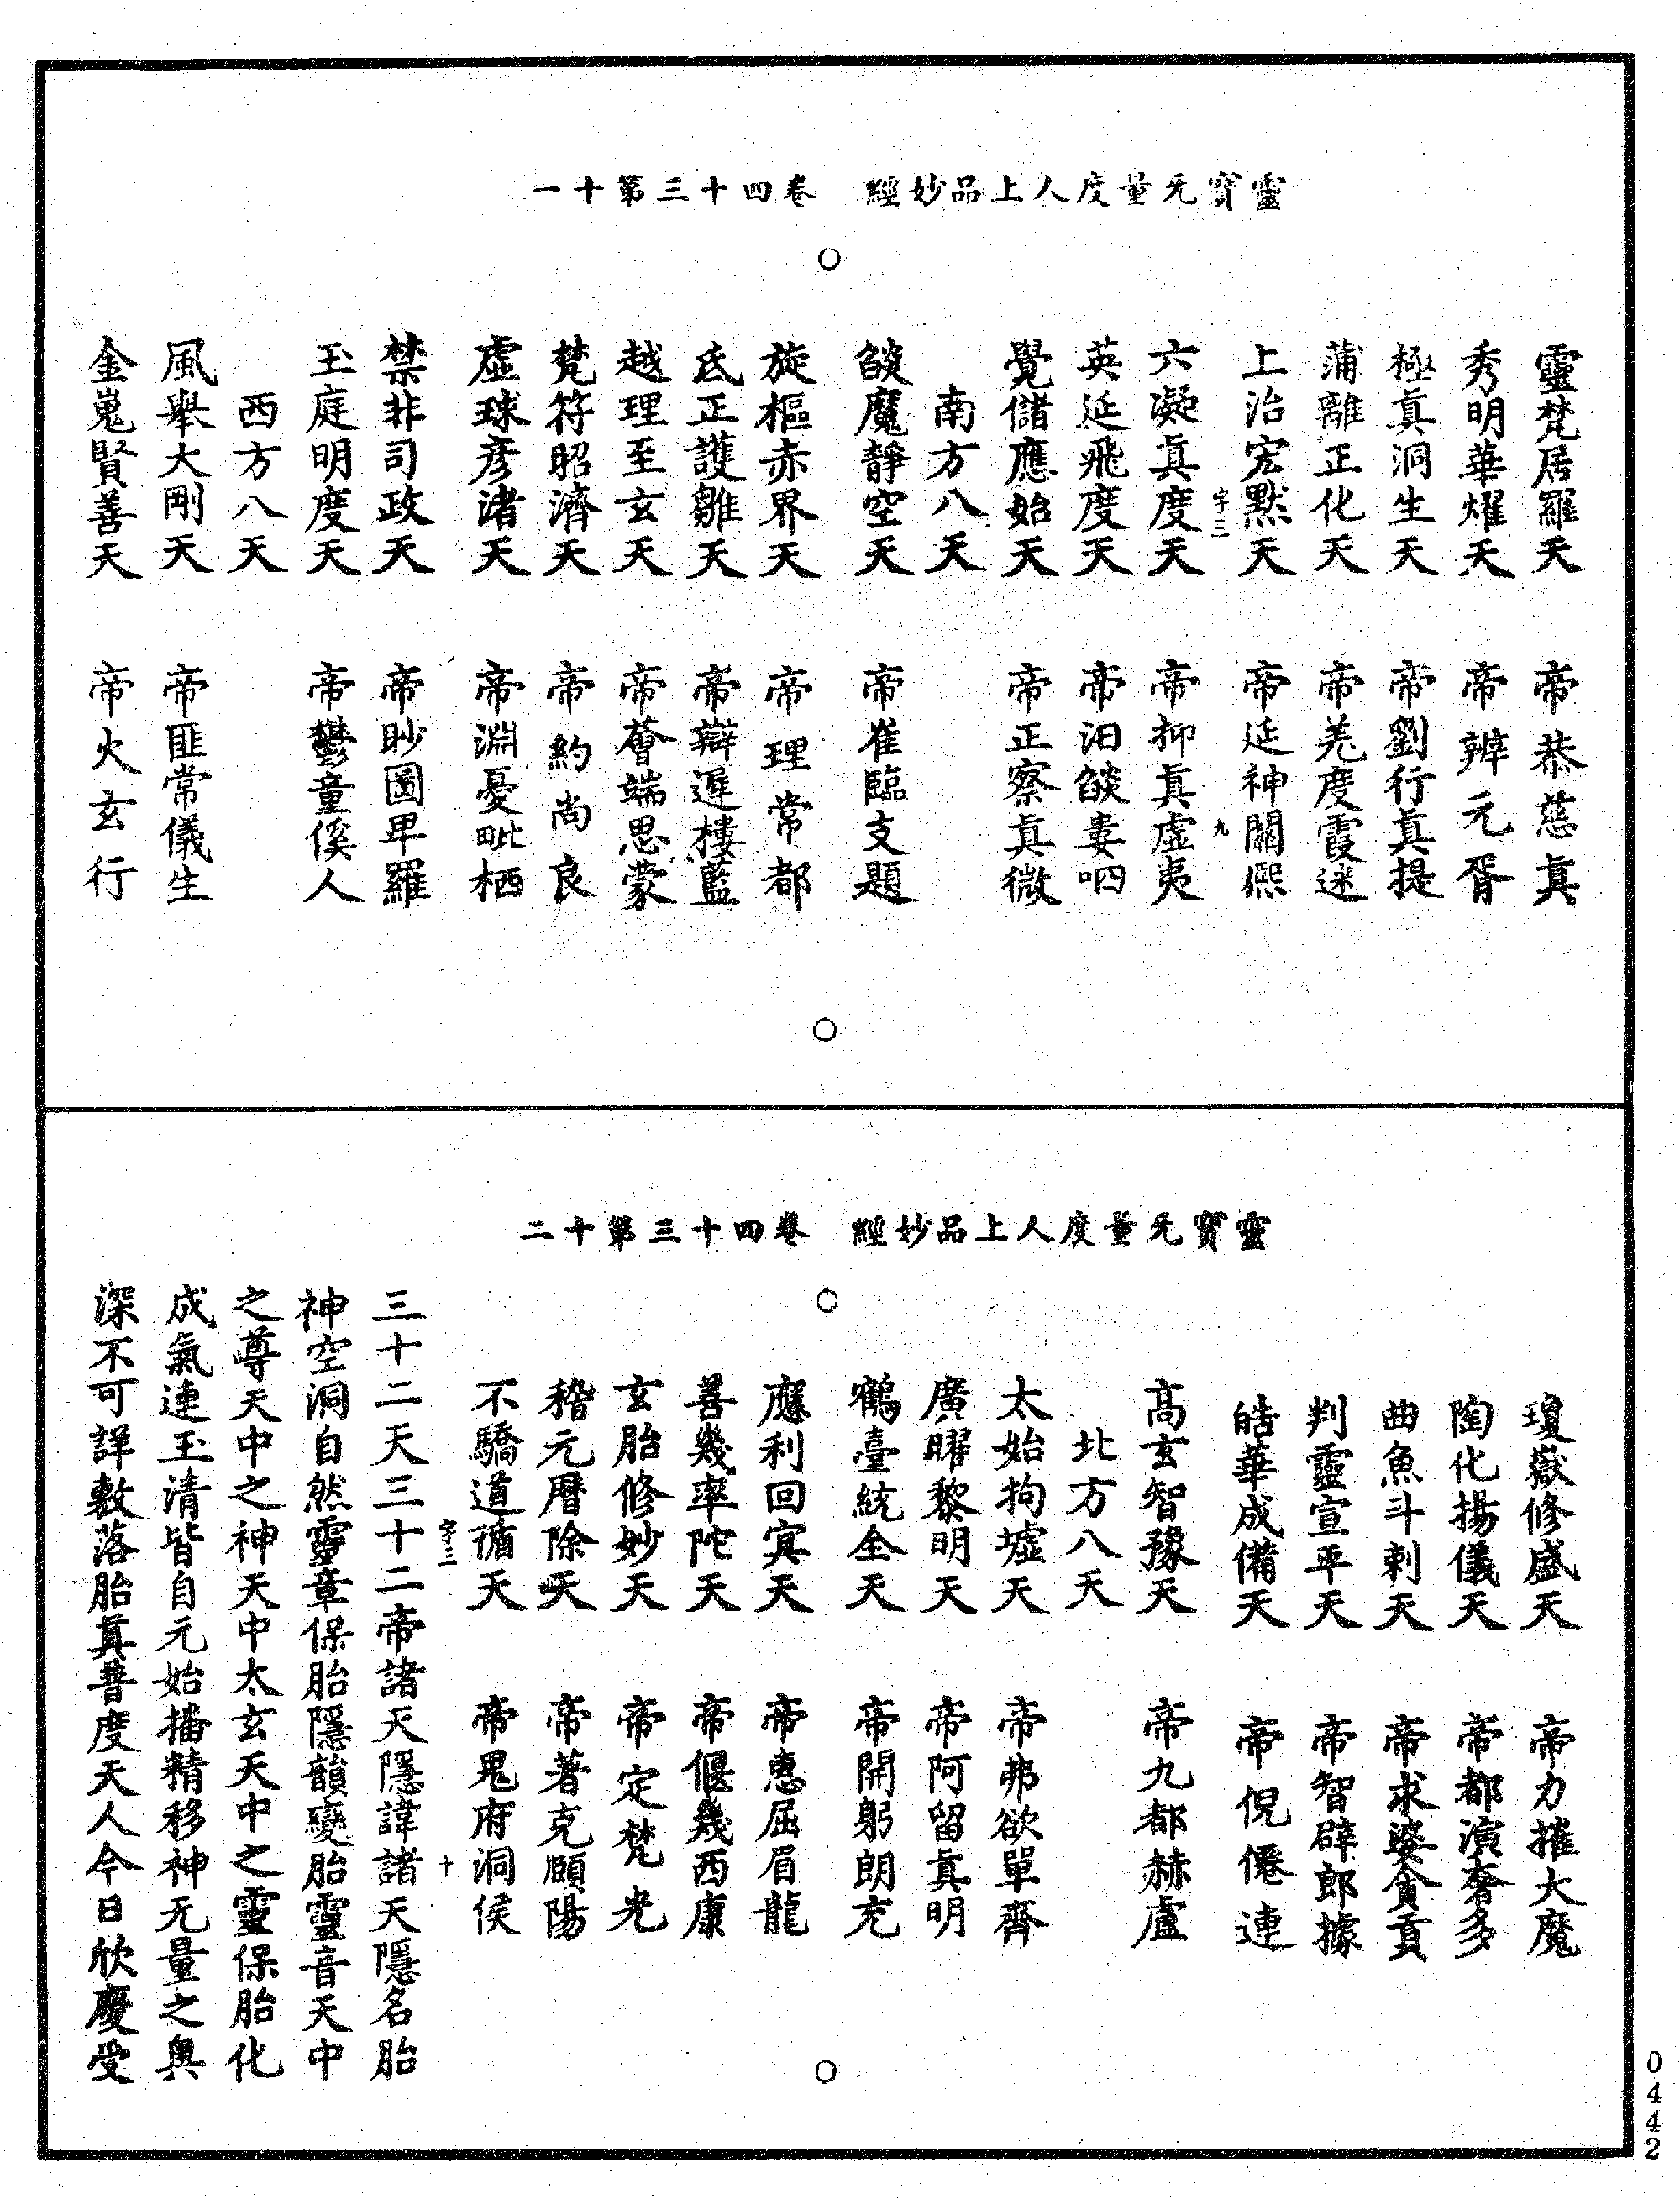 靈寶无量度人上品妙經　卷四十三第十一
靈梵居羅天　帝恭慈真
秀明華燿天　帝辨元胥
極真洞生天　帝劉行真提
蒲離正化天　帝羌度霞迷
上治宏默天　帝延神關熙
字三　九
六凝真度天　帝抑真虛夷
英延飛度天　帝汨燄婁呬
覺儲應始天　帝正察真微
南方八天
燄魔靜空天　帝崔臨支題
旋樞赤界天　帝理常都
氐正護雛天　帝辯遲樓藍
越理至玄天　帝薈端思蒙
梵符昭濟天　帝約尚良
虛球彥渚天　帝淵憂毗栖
禁非司政天　帝眇圖畀羅
玉庭明度天　帝鬱童傒人
西方八天
風舉大剛天　帝匪常儀生
金嵬賢善天　帝火玄行
靈寶无量度人上品妙經　卷四十三第十二
瓊嶽修盛天　帝力摧大魔
陶化揚儀天　帝都演奢多
曲魚斗剌天　帝求婆貪貢
判靈宣平天　帝智辟郎據
皓華成備天　帝倪僊連
高玄智豫天　帝九都赫盧
北方八天
太始拘墟天　帝弗欲單齊
廣曜黎明天　帝阿留真明
鶴臺統全天　帝開躬朗充
應利回冥天　帝惠屈眉龍
善幾率陀天　帝偃幾西康
玄胎修妙天　帝定梵光
稽元曆除天　帝著克頤陽
不驕道循天　帝晃府洞侯
字三　十
三十二天三十二帝諸天隱諱諸天隱名胎
神空洞自然靈章保胎隱韻變胎靈音天中
之尊天中之神天中太玄天中之靈保胎化
成氣連玉清皆自元始播精移神无量之奧
深不可詳敷落胎真普度天人今日欣慶受
0442